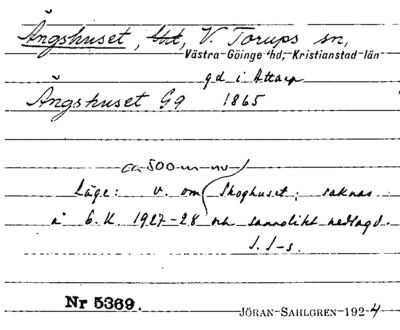 Ängshuset, V. Torups sn,
Västra-Göinge hd, Kristianstad-län
gd i Attarp
Ängshuset Gg 1865
ca 500 m nv
Läge: v. om Skoghuset; saknas
å G. K. 1927-28 och sannolikt nedlagd.
J. S-s.
Nr 5369.
JÖRAN-SAHLGREN-1924